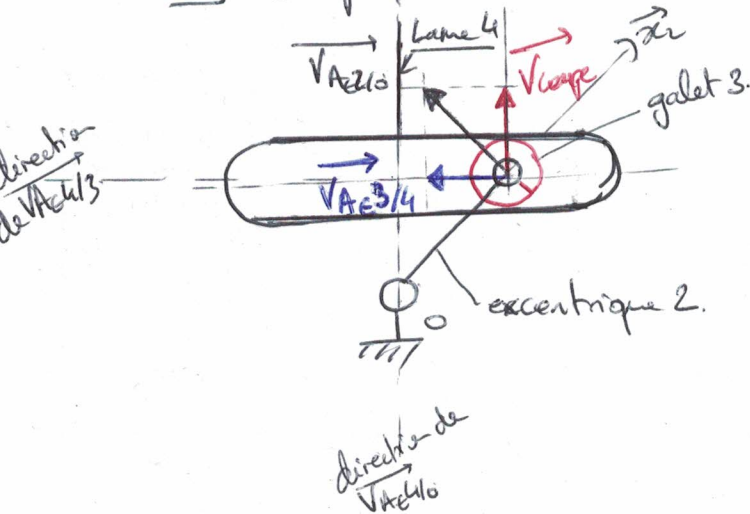 Lame 4
V A∈2/0
V coupe
x2
galet 3.
direction
de V A∈4/3
V A∈3/4
excentrique 2.
O
direction de
V A∈4/0